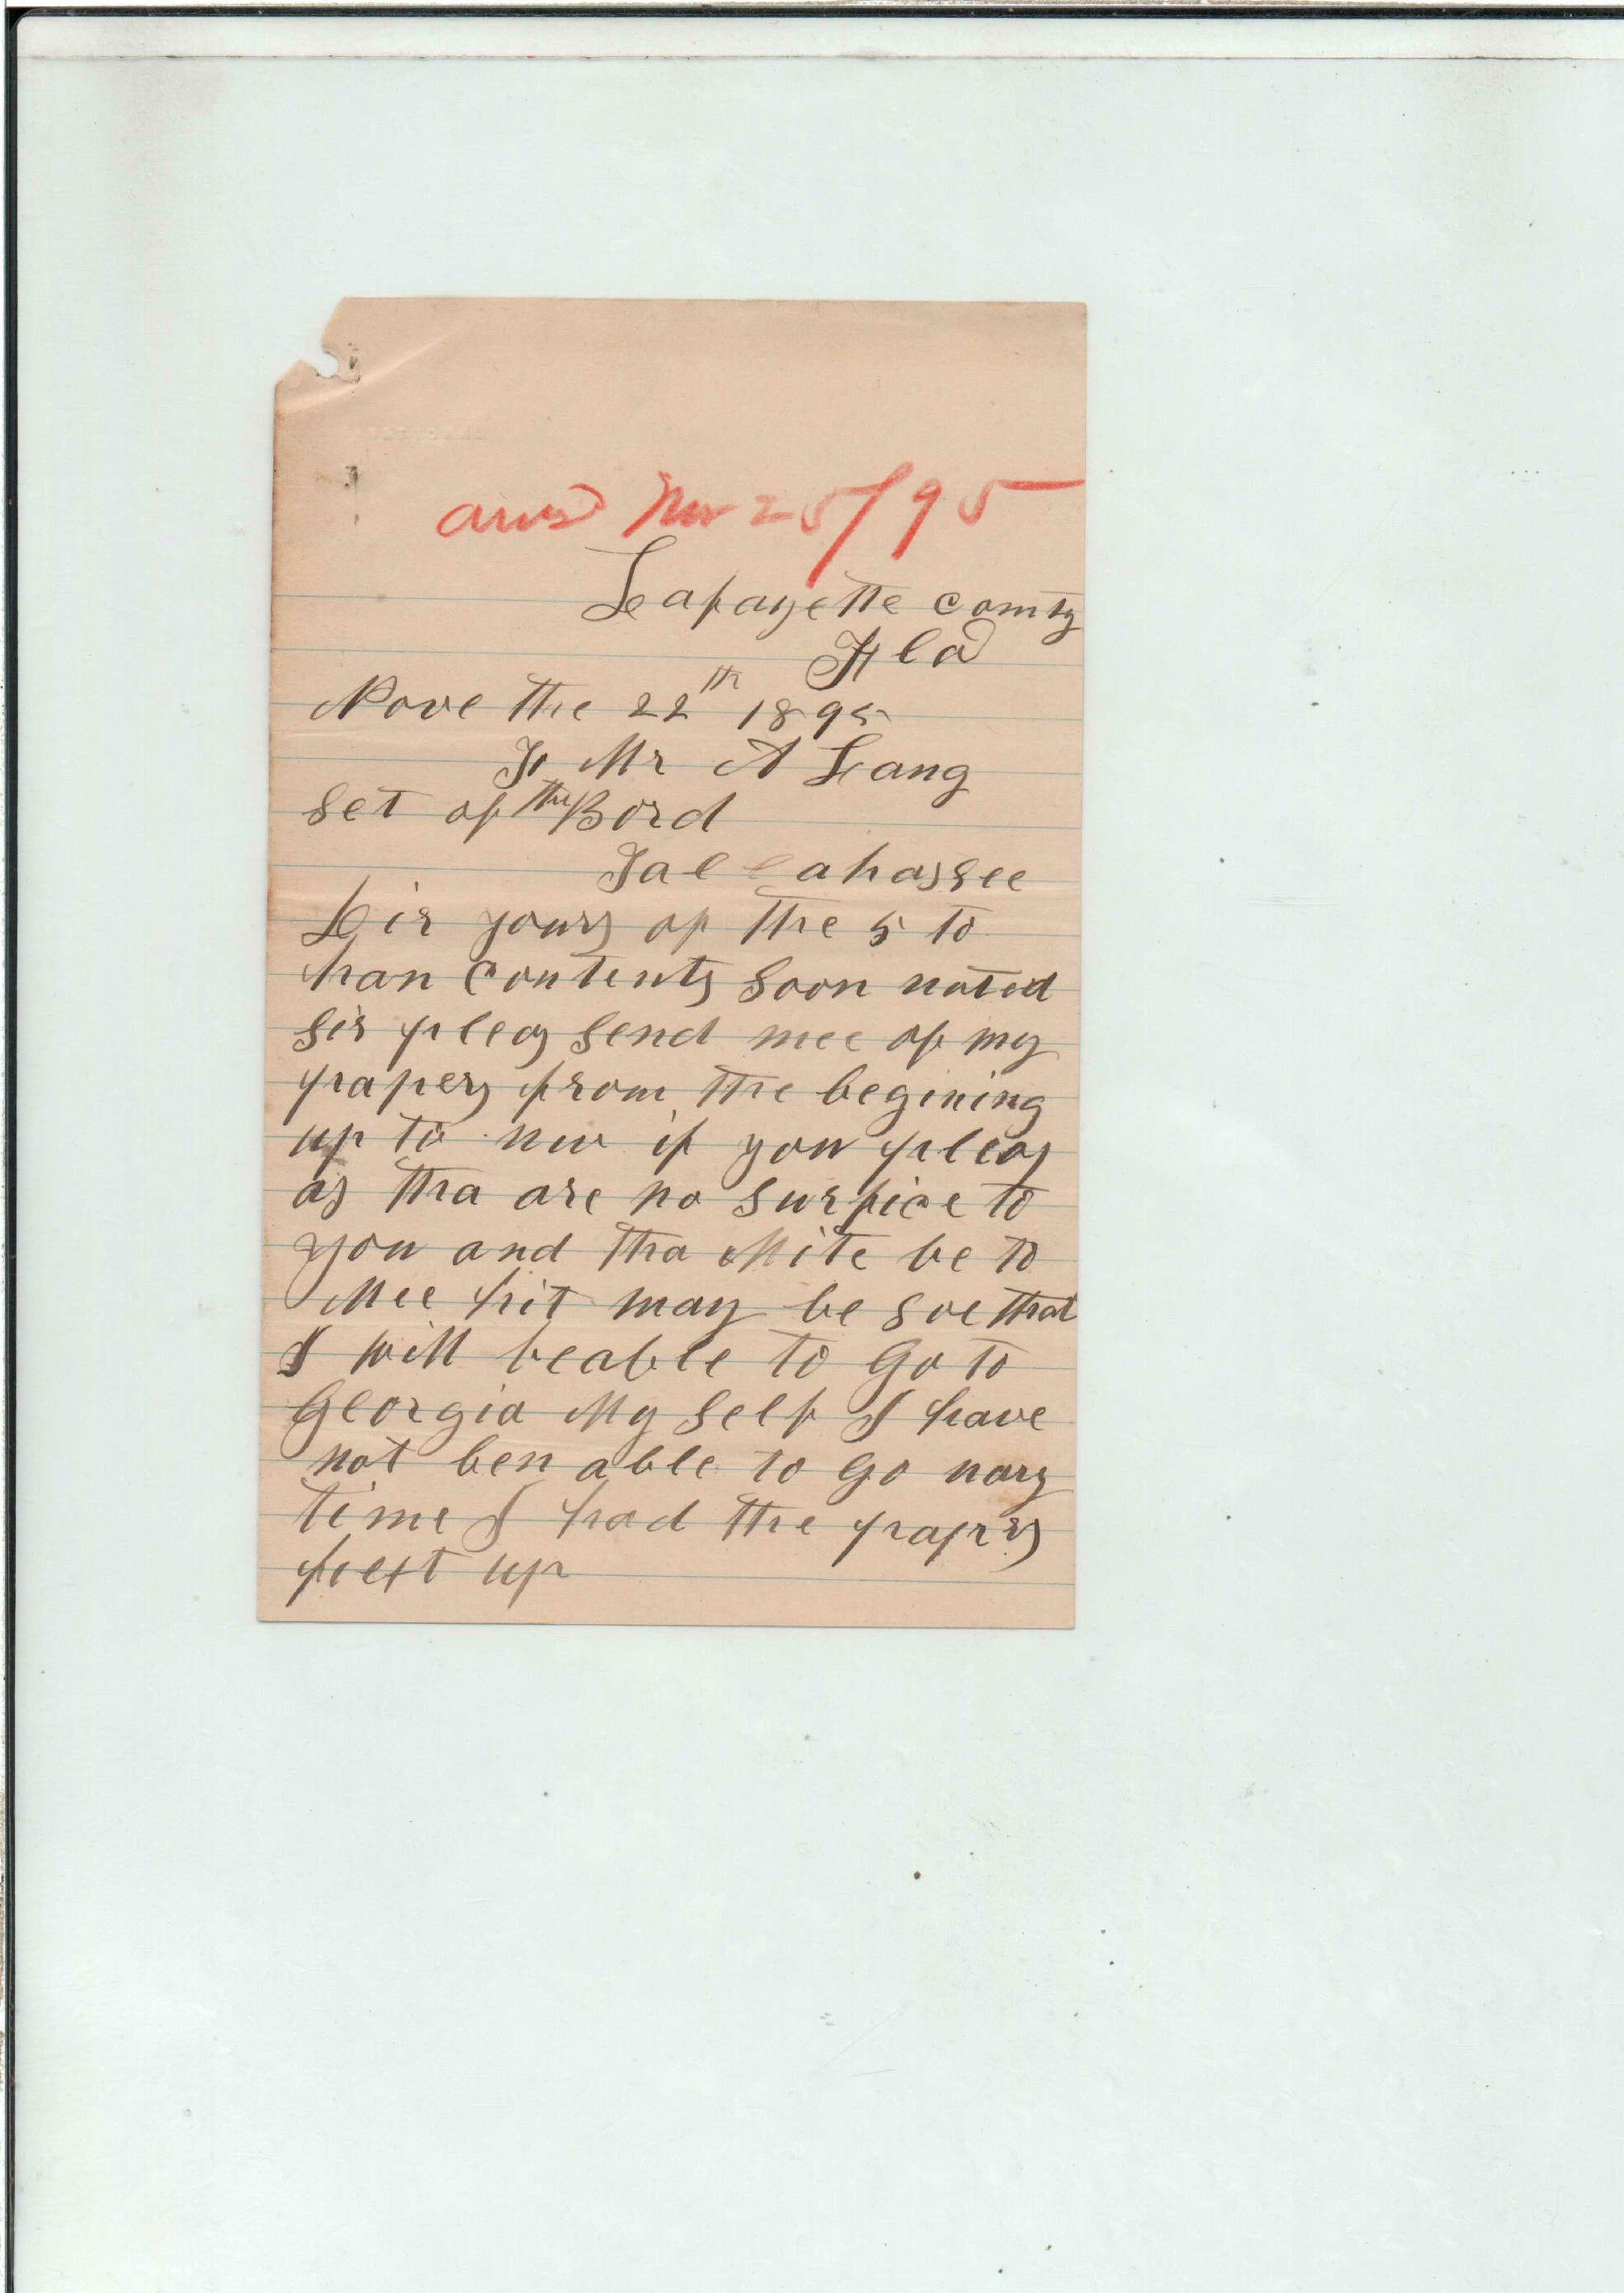 ansd Nov 25/95
Lafayette county
Fla
Nove the 22th 1895
To Mr A Lang
Set of the Bord
Tallahassee
Sir yours of the 5 to
han contents soon noted
sir pleas send mee of my
papers from the begining
up to now if you pleas
as tha are no surfice to
you and tha Mite be to
Mee hit may be soe that
I will beable to Go to
Georgia My self I have
not ben able to go nary
time I had the papers
fext up